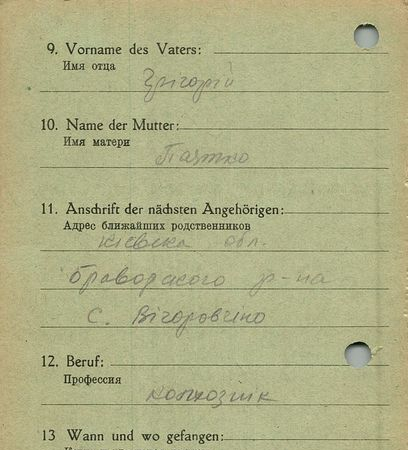 9. Vorname des Vaters:
Имя отца
Григорій
10. Name der Mutter:
Имя матери
Пятко
11. Anschrift der nächsten Angehörigen:
Адрес ближайших родственников
Кіевска обл.
р-на
с. Вігоровчіно
12. Beruf:
Профессия
колхознік
13 Wann und wo gefangen: